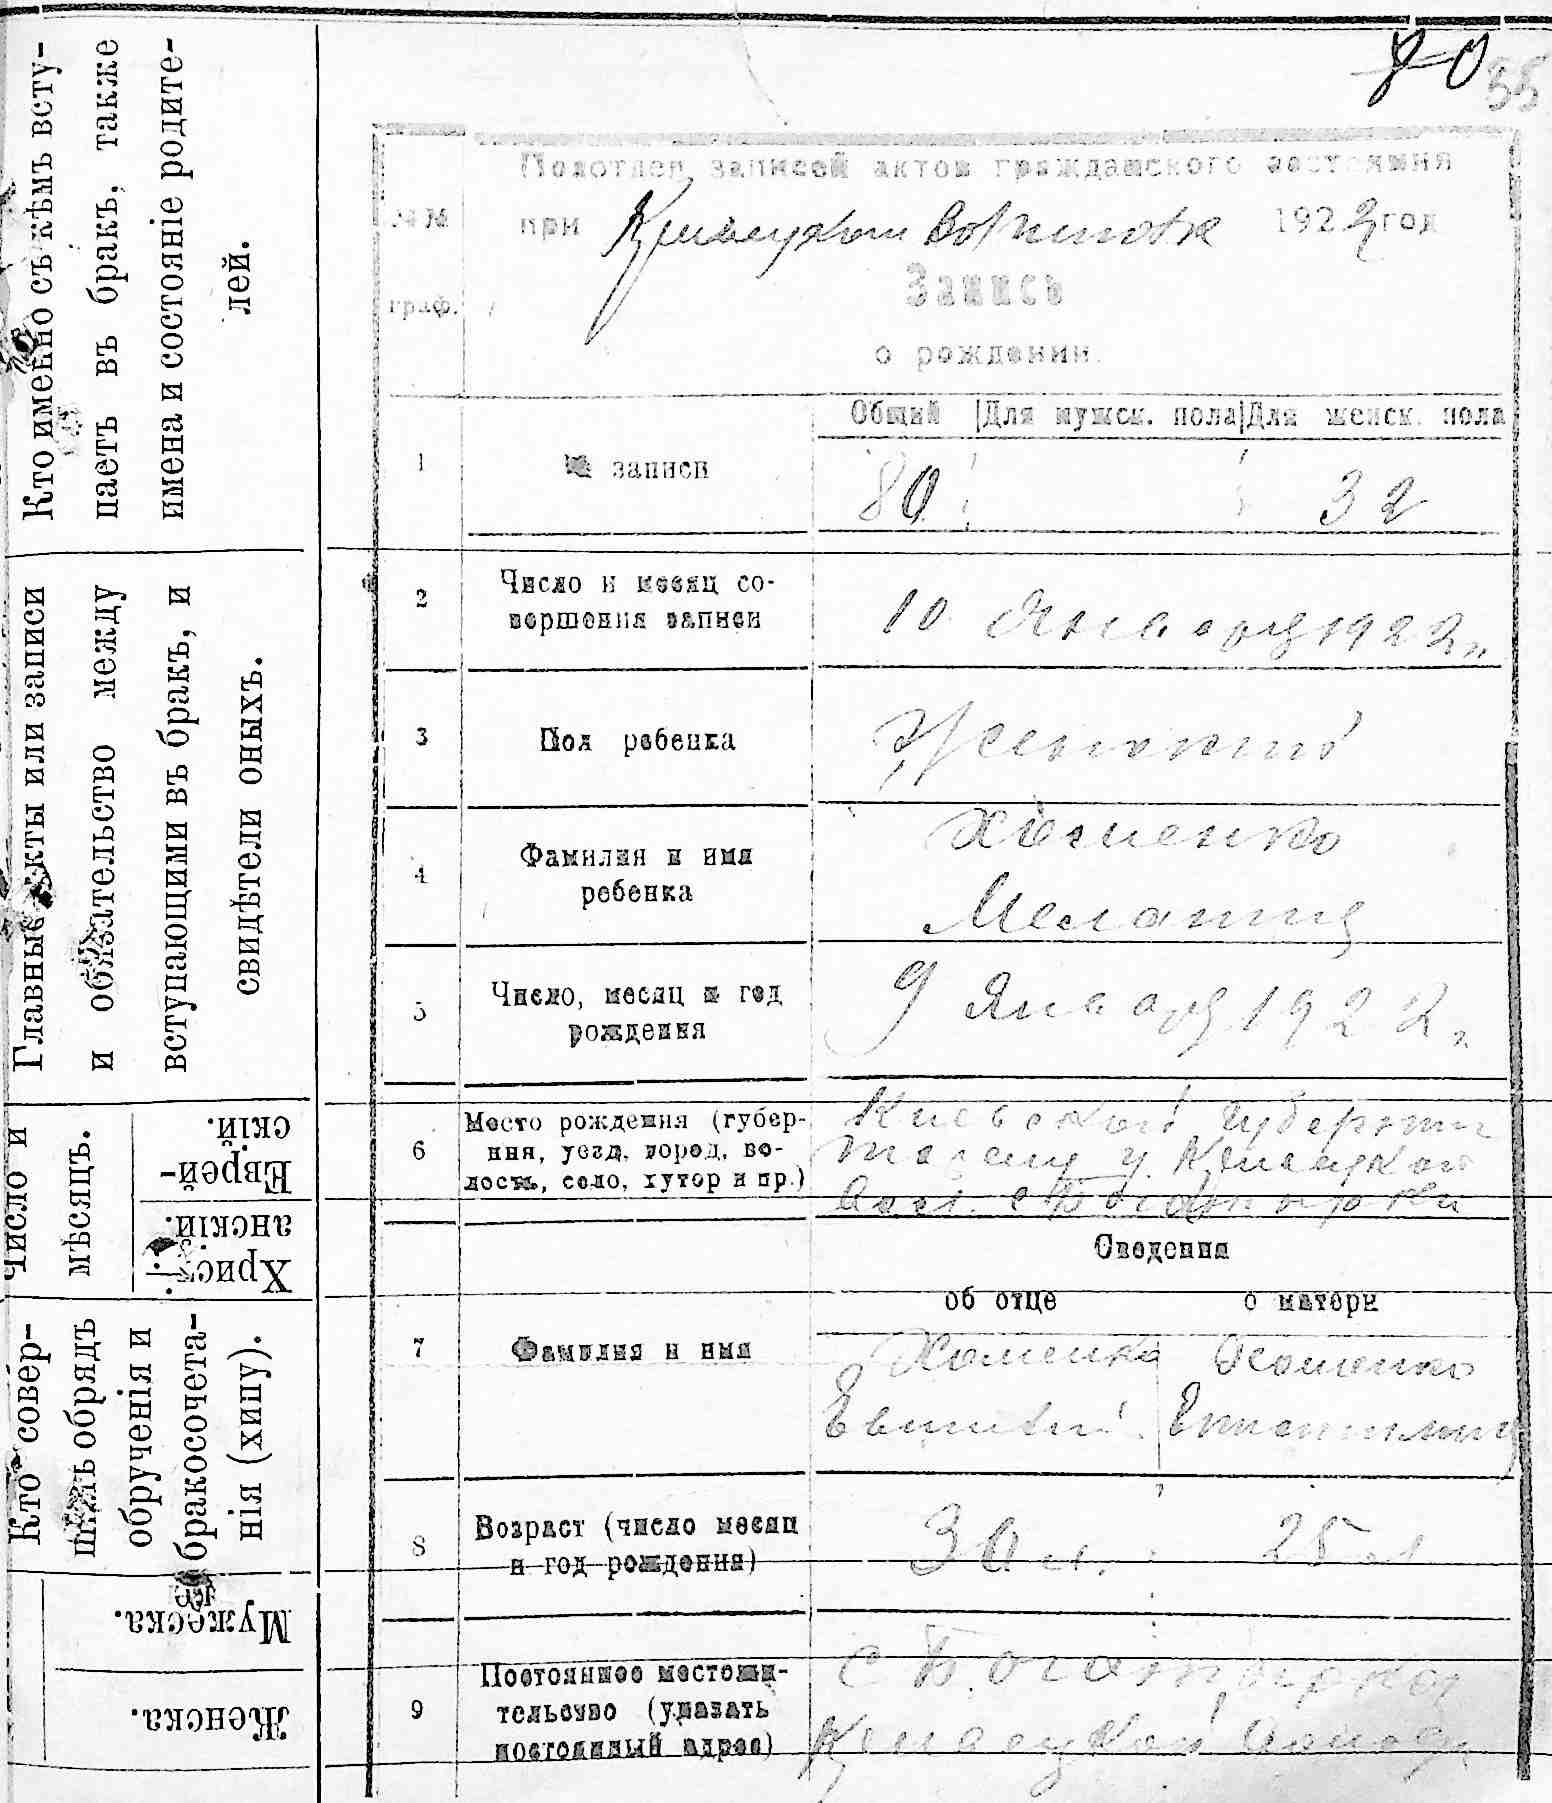 80 35
Подотдел записей актов гражданского состояния
№№ при Кишенцком Волисполк 1922 год
граф. Запись
о рождении.
Общий Для мужск. пола Для женск. пола
1 № записи 80 32
2 Число и месяц со-
вершения записи 10 Января 1922 г.
3 Пол ребенка Женский
4 Фамилия и имя
ребенка Хоменко
Мелания
5 Число, месяц и год
рождения 9 Января 1922 г.
6 Место рождения (губер-
ния, уезд, город, во-
лость, село, хутор и пр.)
Киевской губернии
у
Вол. с Богатырки
Сведения
об отце о матери
7 Фамилия и имя
Хоменко Хоменко
8 Возраст (число месяц
и год рождения) 30 л. 25 л
9 Постоянное местожи-
тельство (указать
постоянный адрес)
с Богатырка
Кто именно съ кѣмъ всту-
паетъ въ бракъ, также
имена и состояніе родите-
лей.
Главные акты или записи
и обязательство между
вступающими въ бракъ, и
свидѣтели оныхъ.
Число и
мѣсяцъ.
Еврей-
скій.
Христі-
анскій.
Кто совер-
шилъ обрядъ
обрученія и
бракосочета-
нія (хипу).
Мужеска.
Женска.